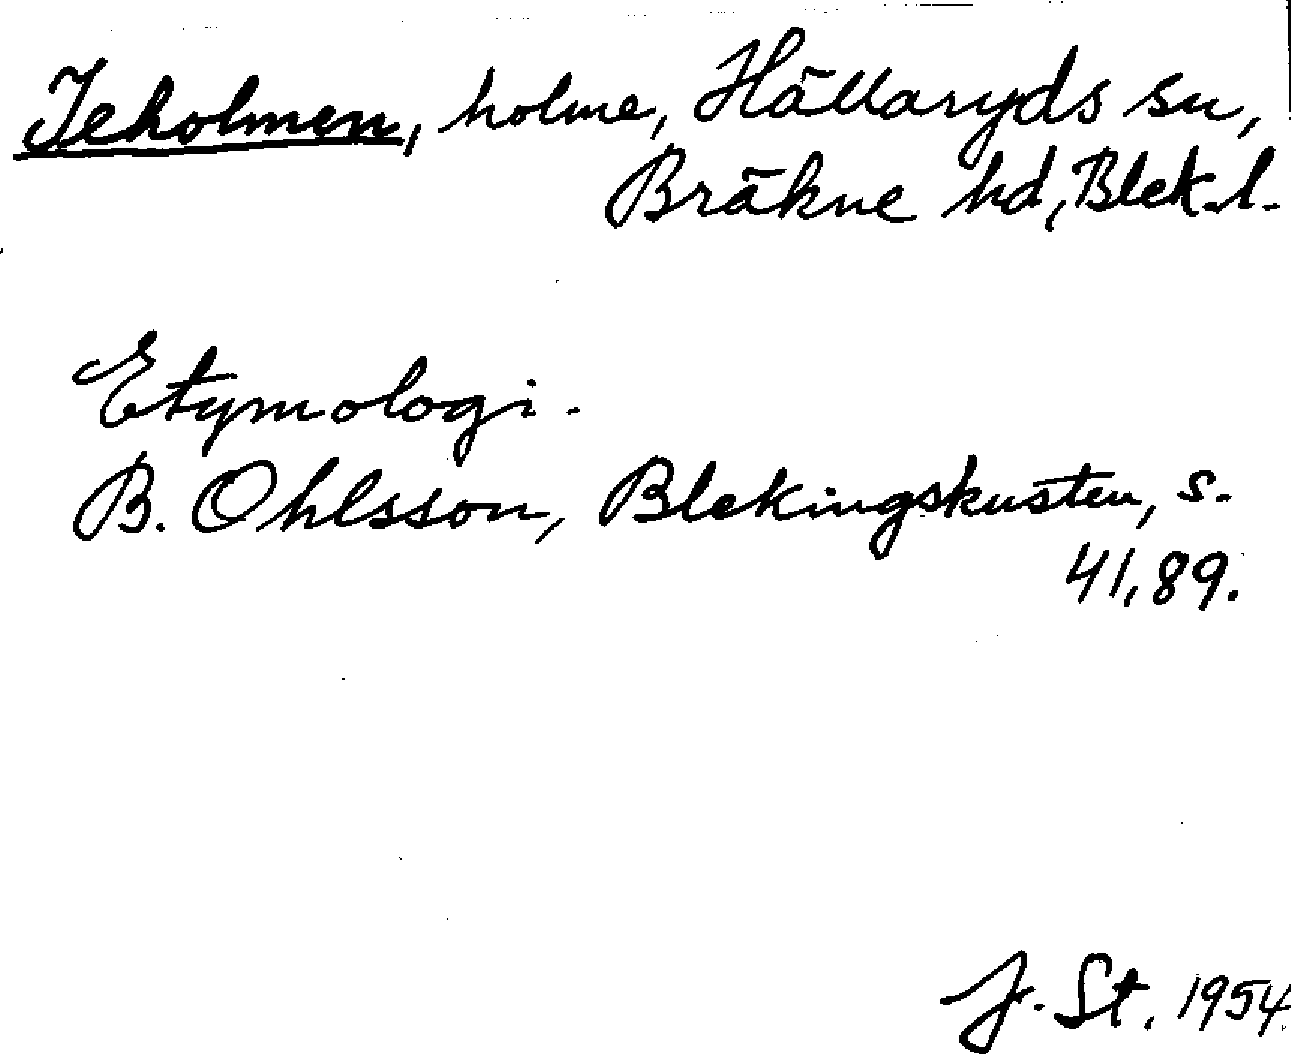 Jeholmen, holme, Hällaryds sn,
Bräkne hd, Blek. l.
Etymologi.
B. Ohlsson, Blekingskusten, s.
41, 89.
J. St. 1954.